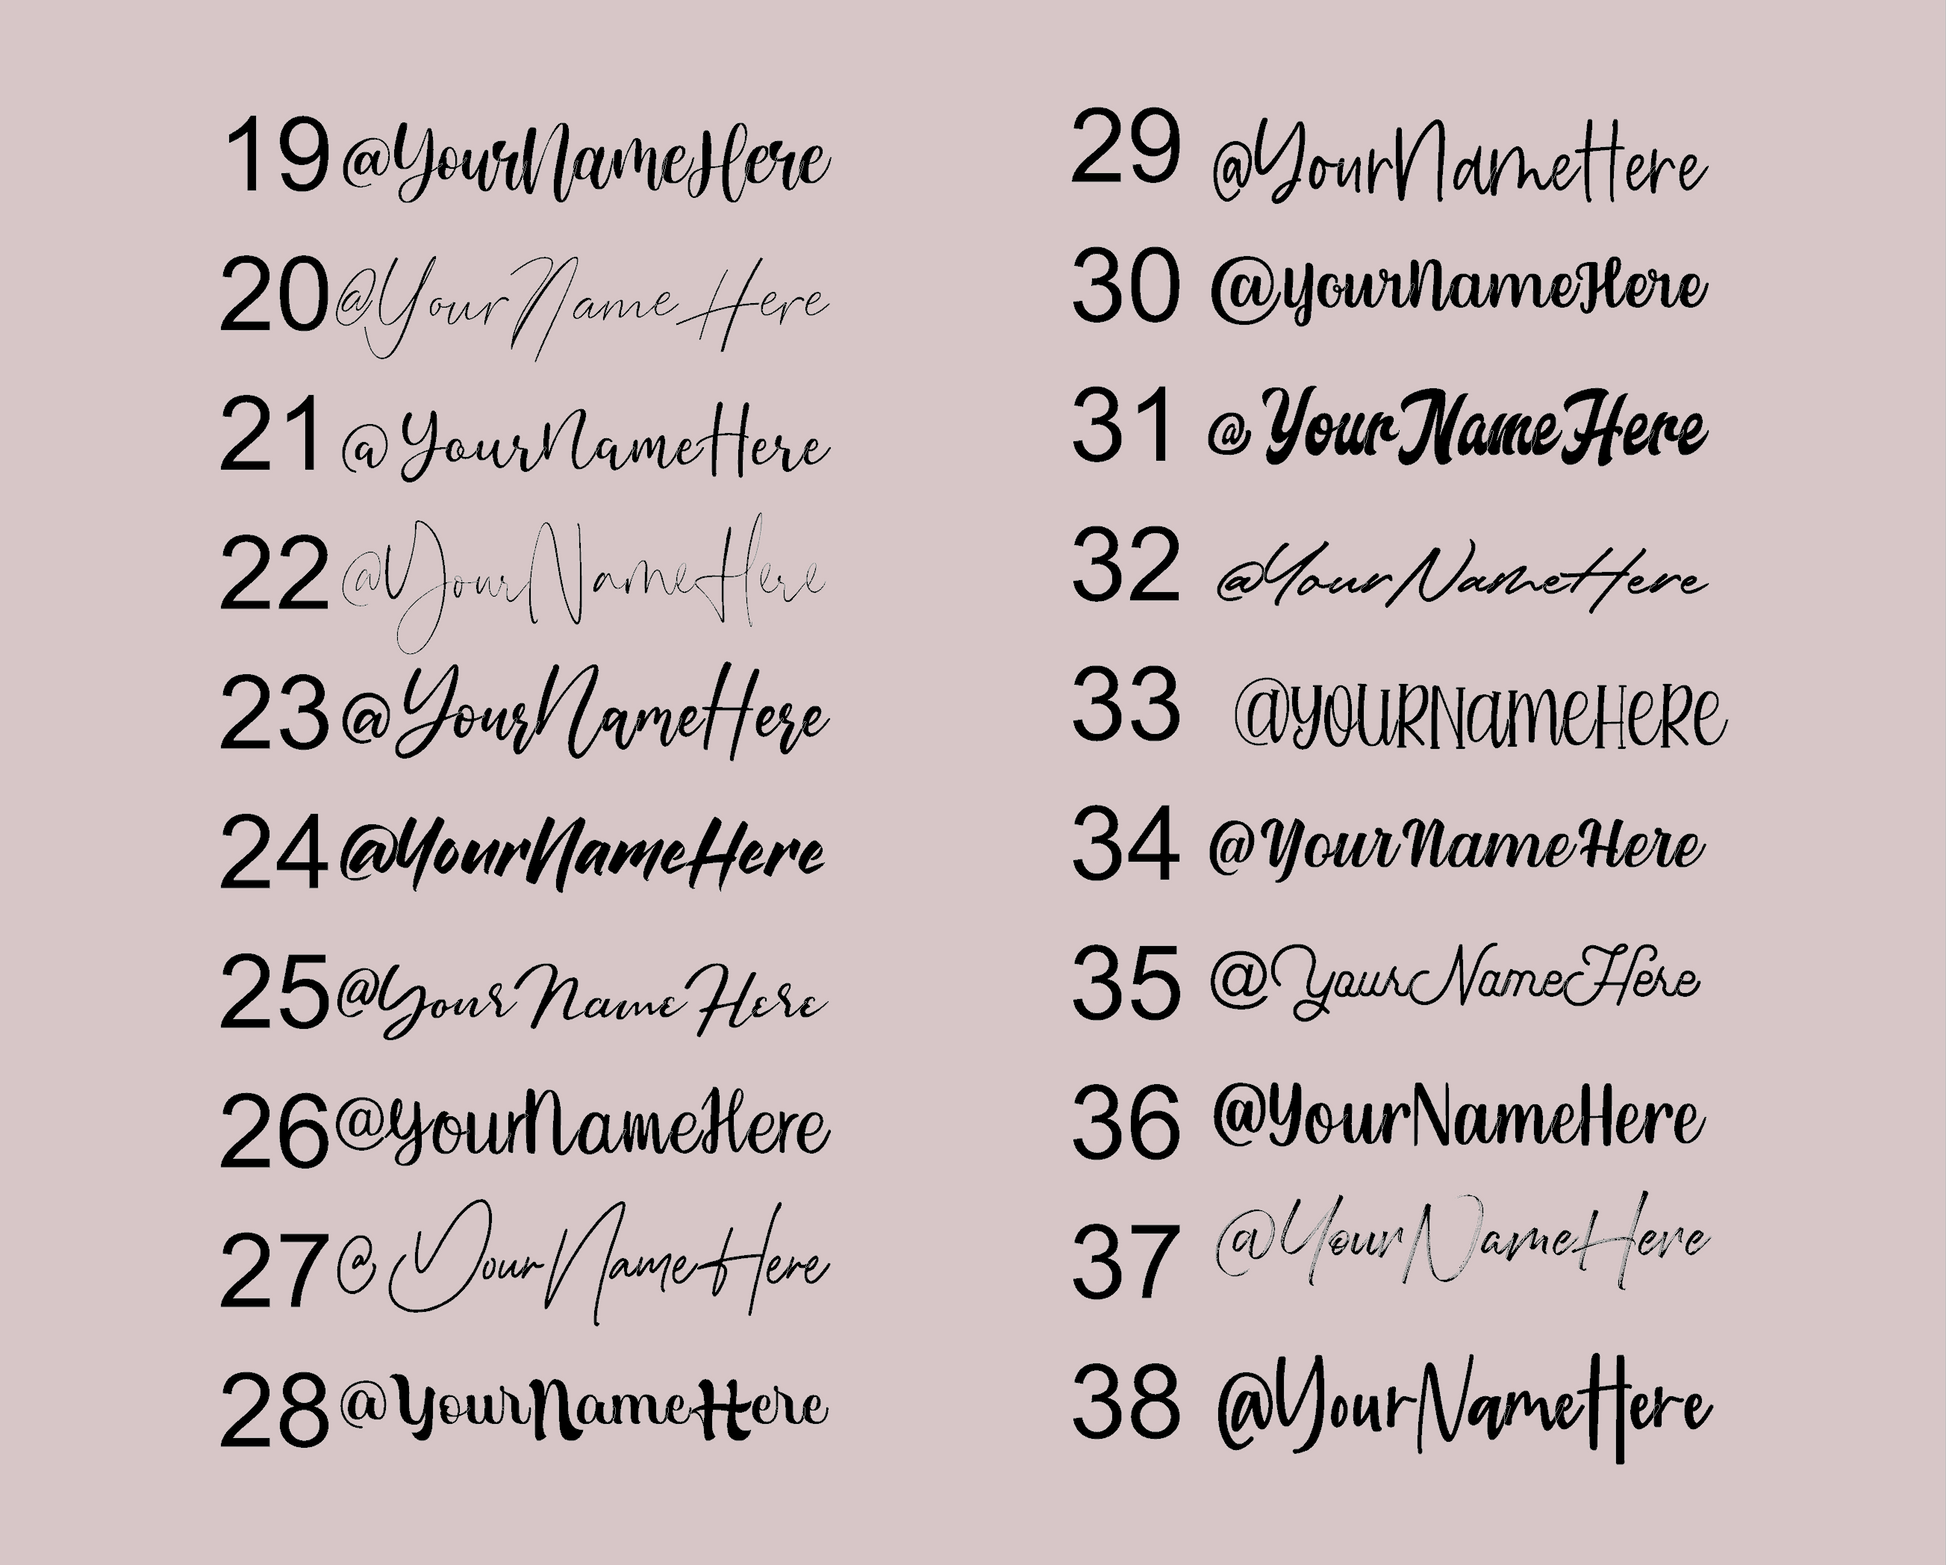 19 @YourNameHere
20 @YourNameHere
21 @YourNameHere
22 @YourNameHere
23 @YourNameHere
24 @YourNameHere
25 @YourNameHere
26 @YourNameHere
27 @YourNameHere
28 @YourNameHere
29 @YourNameHere
30 @YourNameHere
31 @YourNameHere
32 @YourNameHere
33 @YOURNameHeRe
34 @YourNameHere
35 @YourNameHere
36 @YourNameHere
37 @YourNameHere
38 @YourNameHere